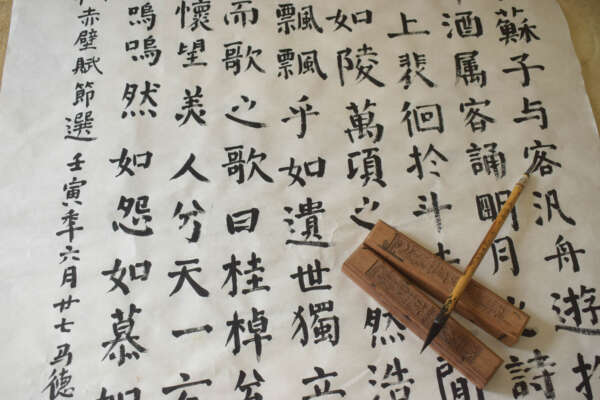 蘇子与客汎舟游於
酒属客誦明月之詩
上裴徊於斗間
如陵萬頃之然浩
飄飄乎如遺世獨立
而歌之歌曰桂棹兮
懷望美人兮天一方
嗚嗚然如怨如慕如
赤壁賦節選 壬寅年六月廿七 马德